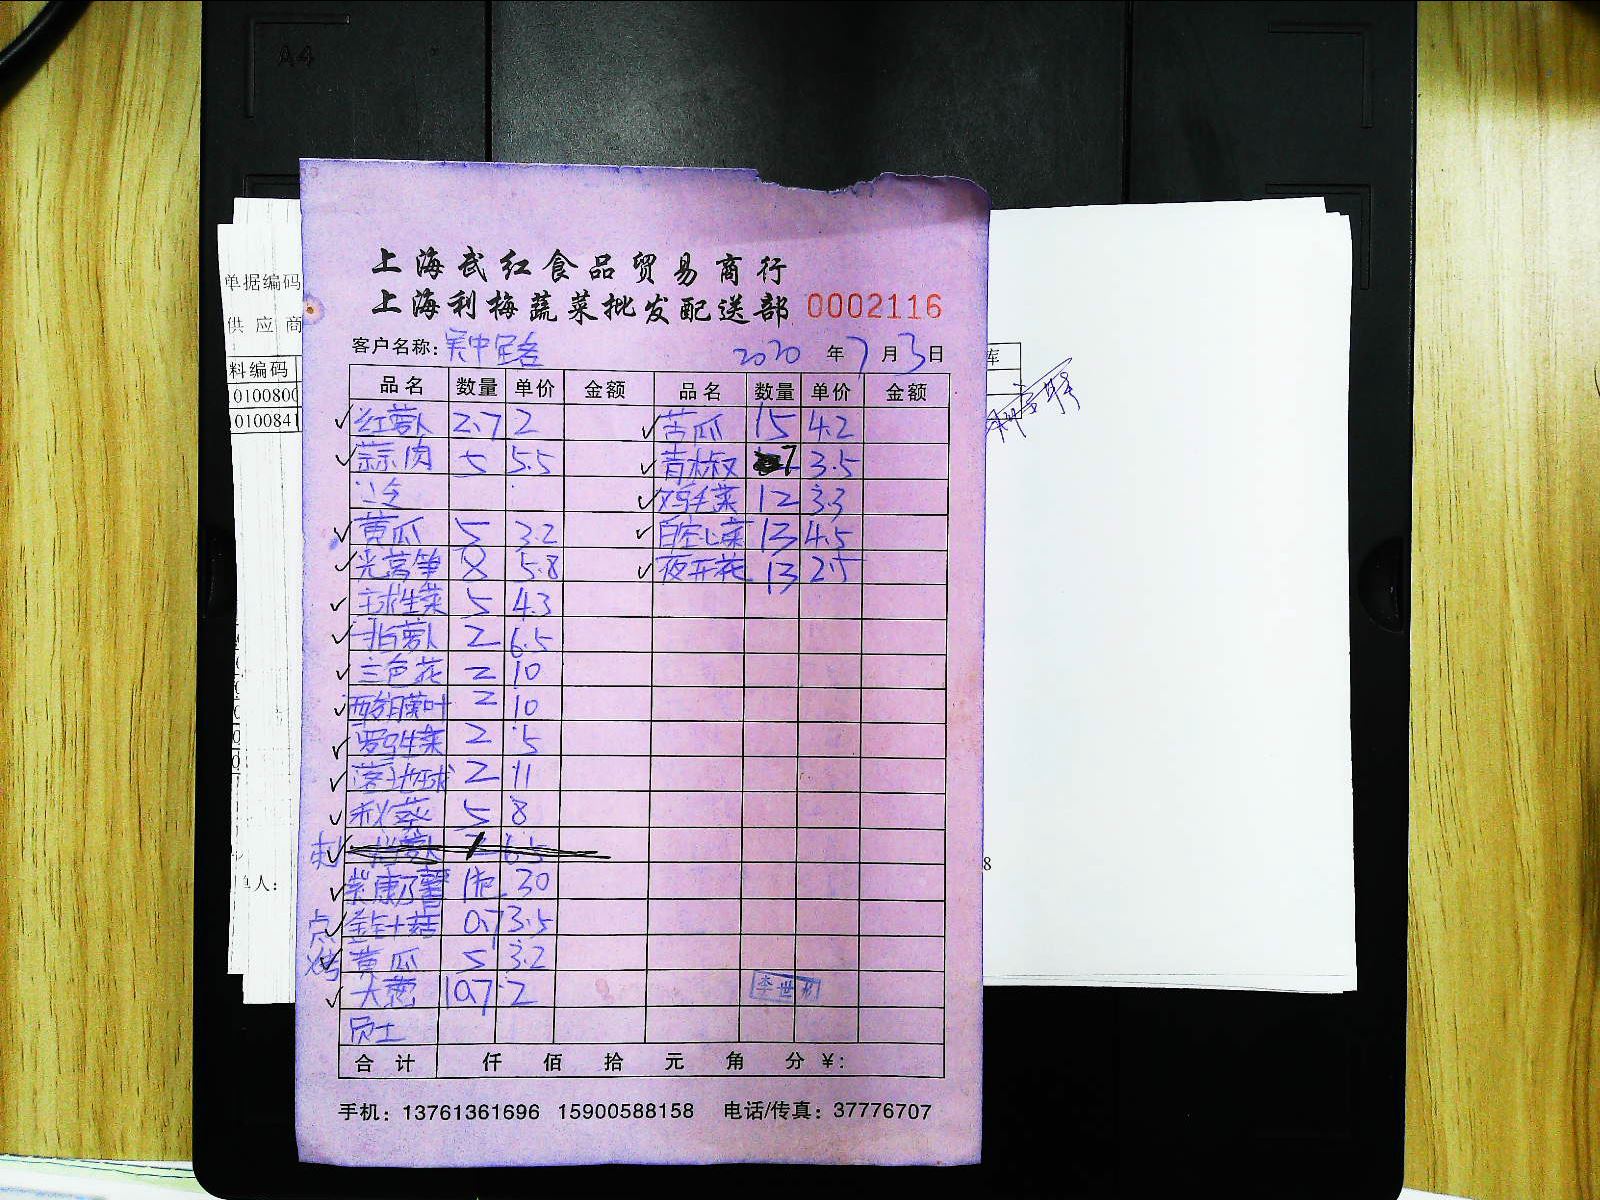 A4
单据编码
供应商
料编码
0100800
010084
单人：
库
8
上海武红食品贸易商行
上海利梅蔬菜批发配送部 0002116
客户名称： 2020 年 7 月 3 日
品名 数量 单价 金额 品名 数量 单价 金额
✓ 红萝卜 2.7 2 ✓ 苦瓜 15 4.2
✓ 蒜肉 5 5.5 ✓ 青椒 7 3.5
✓ 鸡毛菜 12 3.3
✓ 黄瓜 5 3.2 ✓ 白空心菜 13 4.5
✓ 光莴笋 8 5.8 ✓ 夜开花 13 2.5
✓ 球生菜 5 4.3
✓ 萝卜 2 6.5
✓ 三色花 2 10
✓ 叶 2 10
✓ 罗马生菜 2 5
✓ 落地球 2 11
✓ 秋葵 5 8
✓ 萝卜 2 6.5
✓ 紫康乃馨 1扎 30
点 ✓ 金针菇 0.7 3.5
✓ 黄瓜 5 3.2
✓ 大葱 10.7 2
员工
李世
合计 仟 佰 拾 元 角 分 ¥：
手机：13761361696 15900588158 电话/传真：37776707